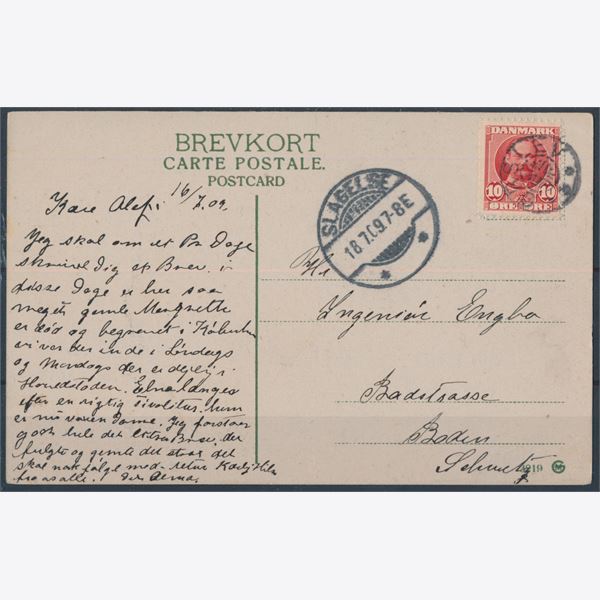 BREVKORT
CARTE POSTALE.
POSTCARD
DANMARK
10 10
ØRE ØRE
SLAGELSE
18.7.09.7-8E
16/7.09.
Kære
Jeg skal om et Par Dage
skrive Dig et Brev. i
disse Dage er her saa
meget, gamle
er død og begravet i
vi var der inde i Lørdags
og Mandags der er dejlig i
Hovedstaden.
efter en rigtig hun
er nu voxen Dame. Jeg forstaar
godt hele det
fulgte og gemte det
skal nok følge med
fra os alle.! Din
Hr
Ingeniör Engbo
Badstrasse
Baden
Schweiz
219